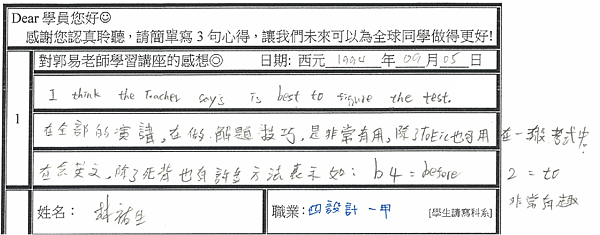 Dear 學員您好☺
感謝您認真聆聽，請簡單寫3句心得，讓我們未來可以為全球同學做得更好!
對郭易老師學習講座的感想◎ 日期: 西元 1994 年 09 月 05 日
1
I think the Teacher says is best to figure the test.
在全部的演講，在做解題技巧，是非常有用，除了ToEic也可用在一般考試中。
在念英文，除了死背也有許多方法表示如：b4 = before 2 = to
非常有趣
姓名：
職業：四設計一甲 [學生請寫科系]